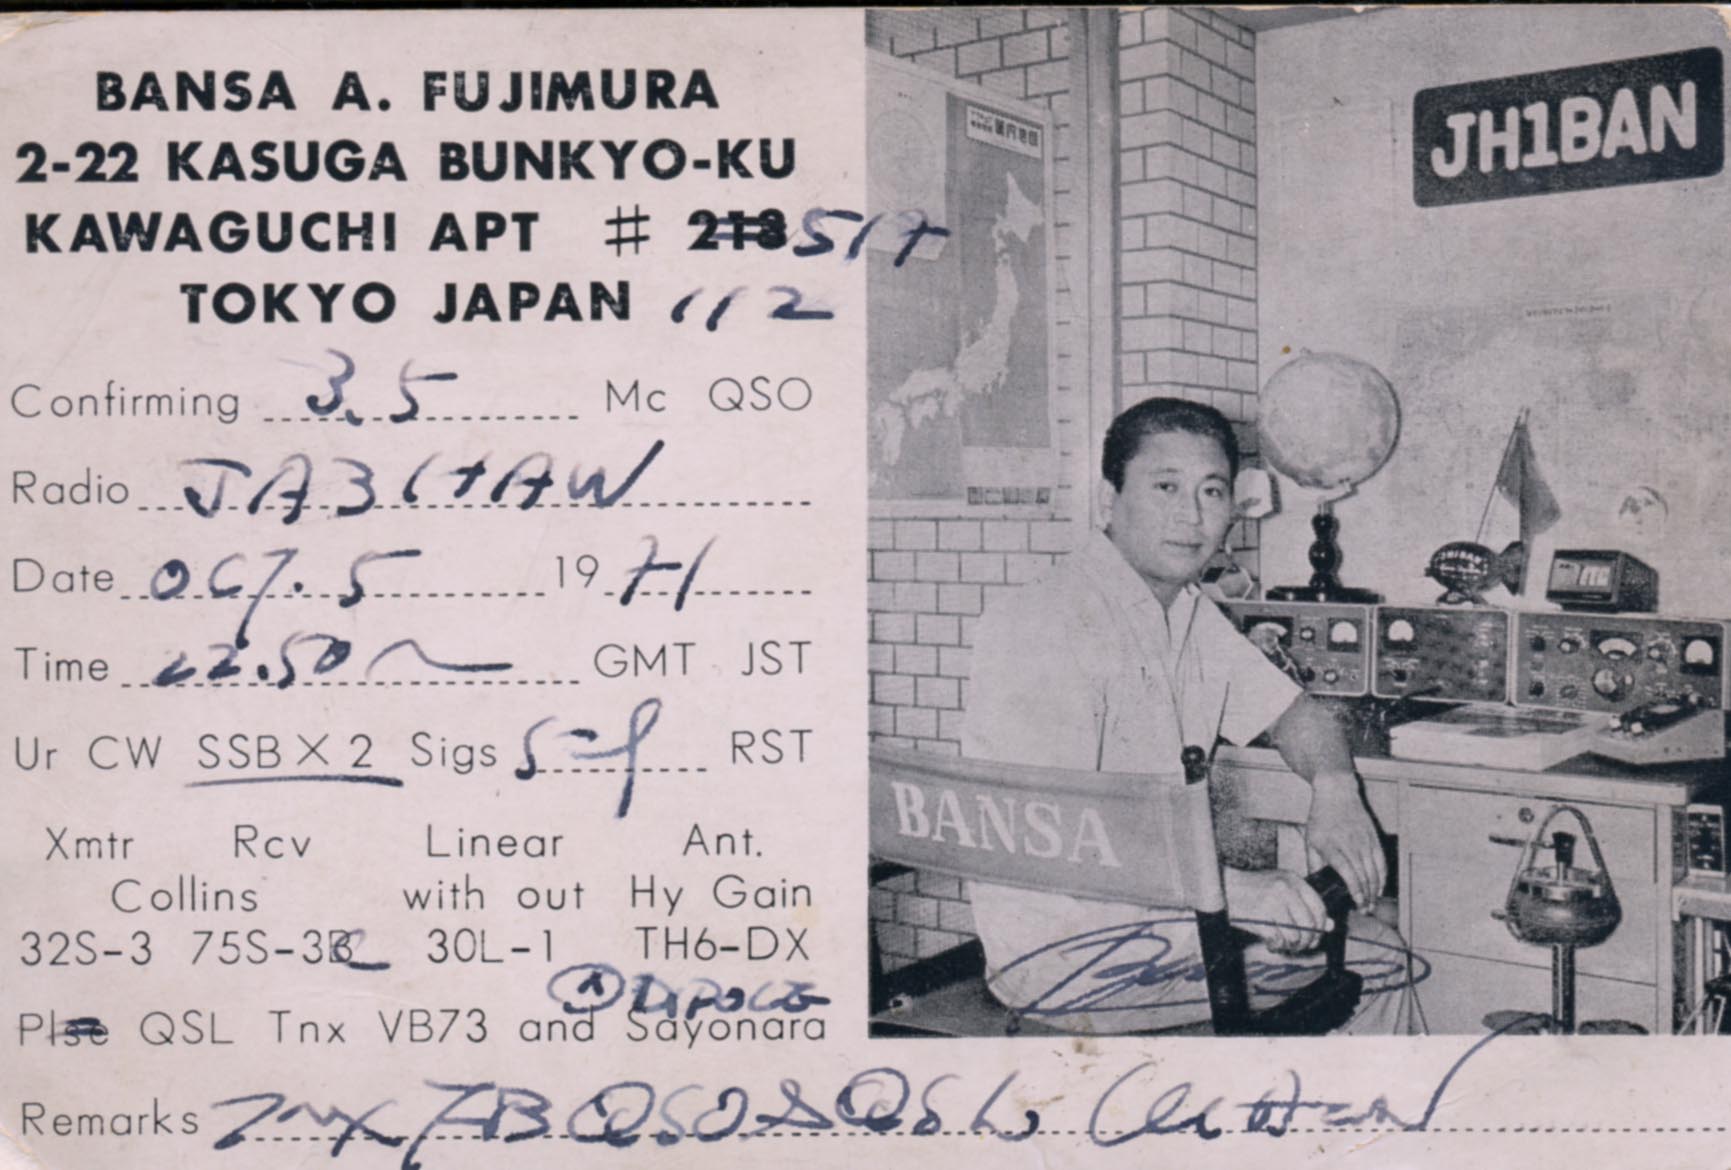 BANSA A. FUJIMURA
2-22 KASUGA BUNKYO-KU
KAWAGUCHI APT # 213 517
TOKYO JAPAN 112
Confirming 3.5 Mc QSO
Radio JA3HAW
Date OCT. 5 1971
Time 22.50 GMT JST
Ur CW SSB X 2 Sigs 5-9 RST
Xmtr Rcv Linear Ant.
Collins with out Hy Gain
32S-3 75S-3B C 30L-1 TH6-DX
DIPOLE
Plse QSL Tnx VB73 and Sayonara
Remarks TNX FB QSO & QSL
JH1BAN
JH1BAN
BANSA
Bansa